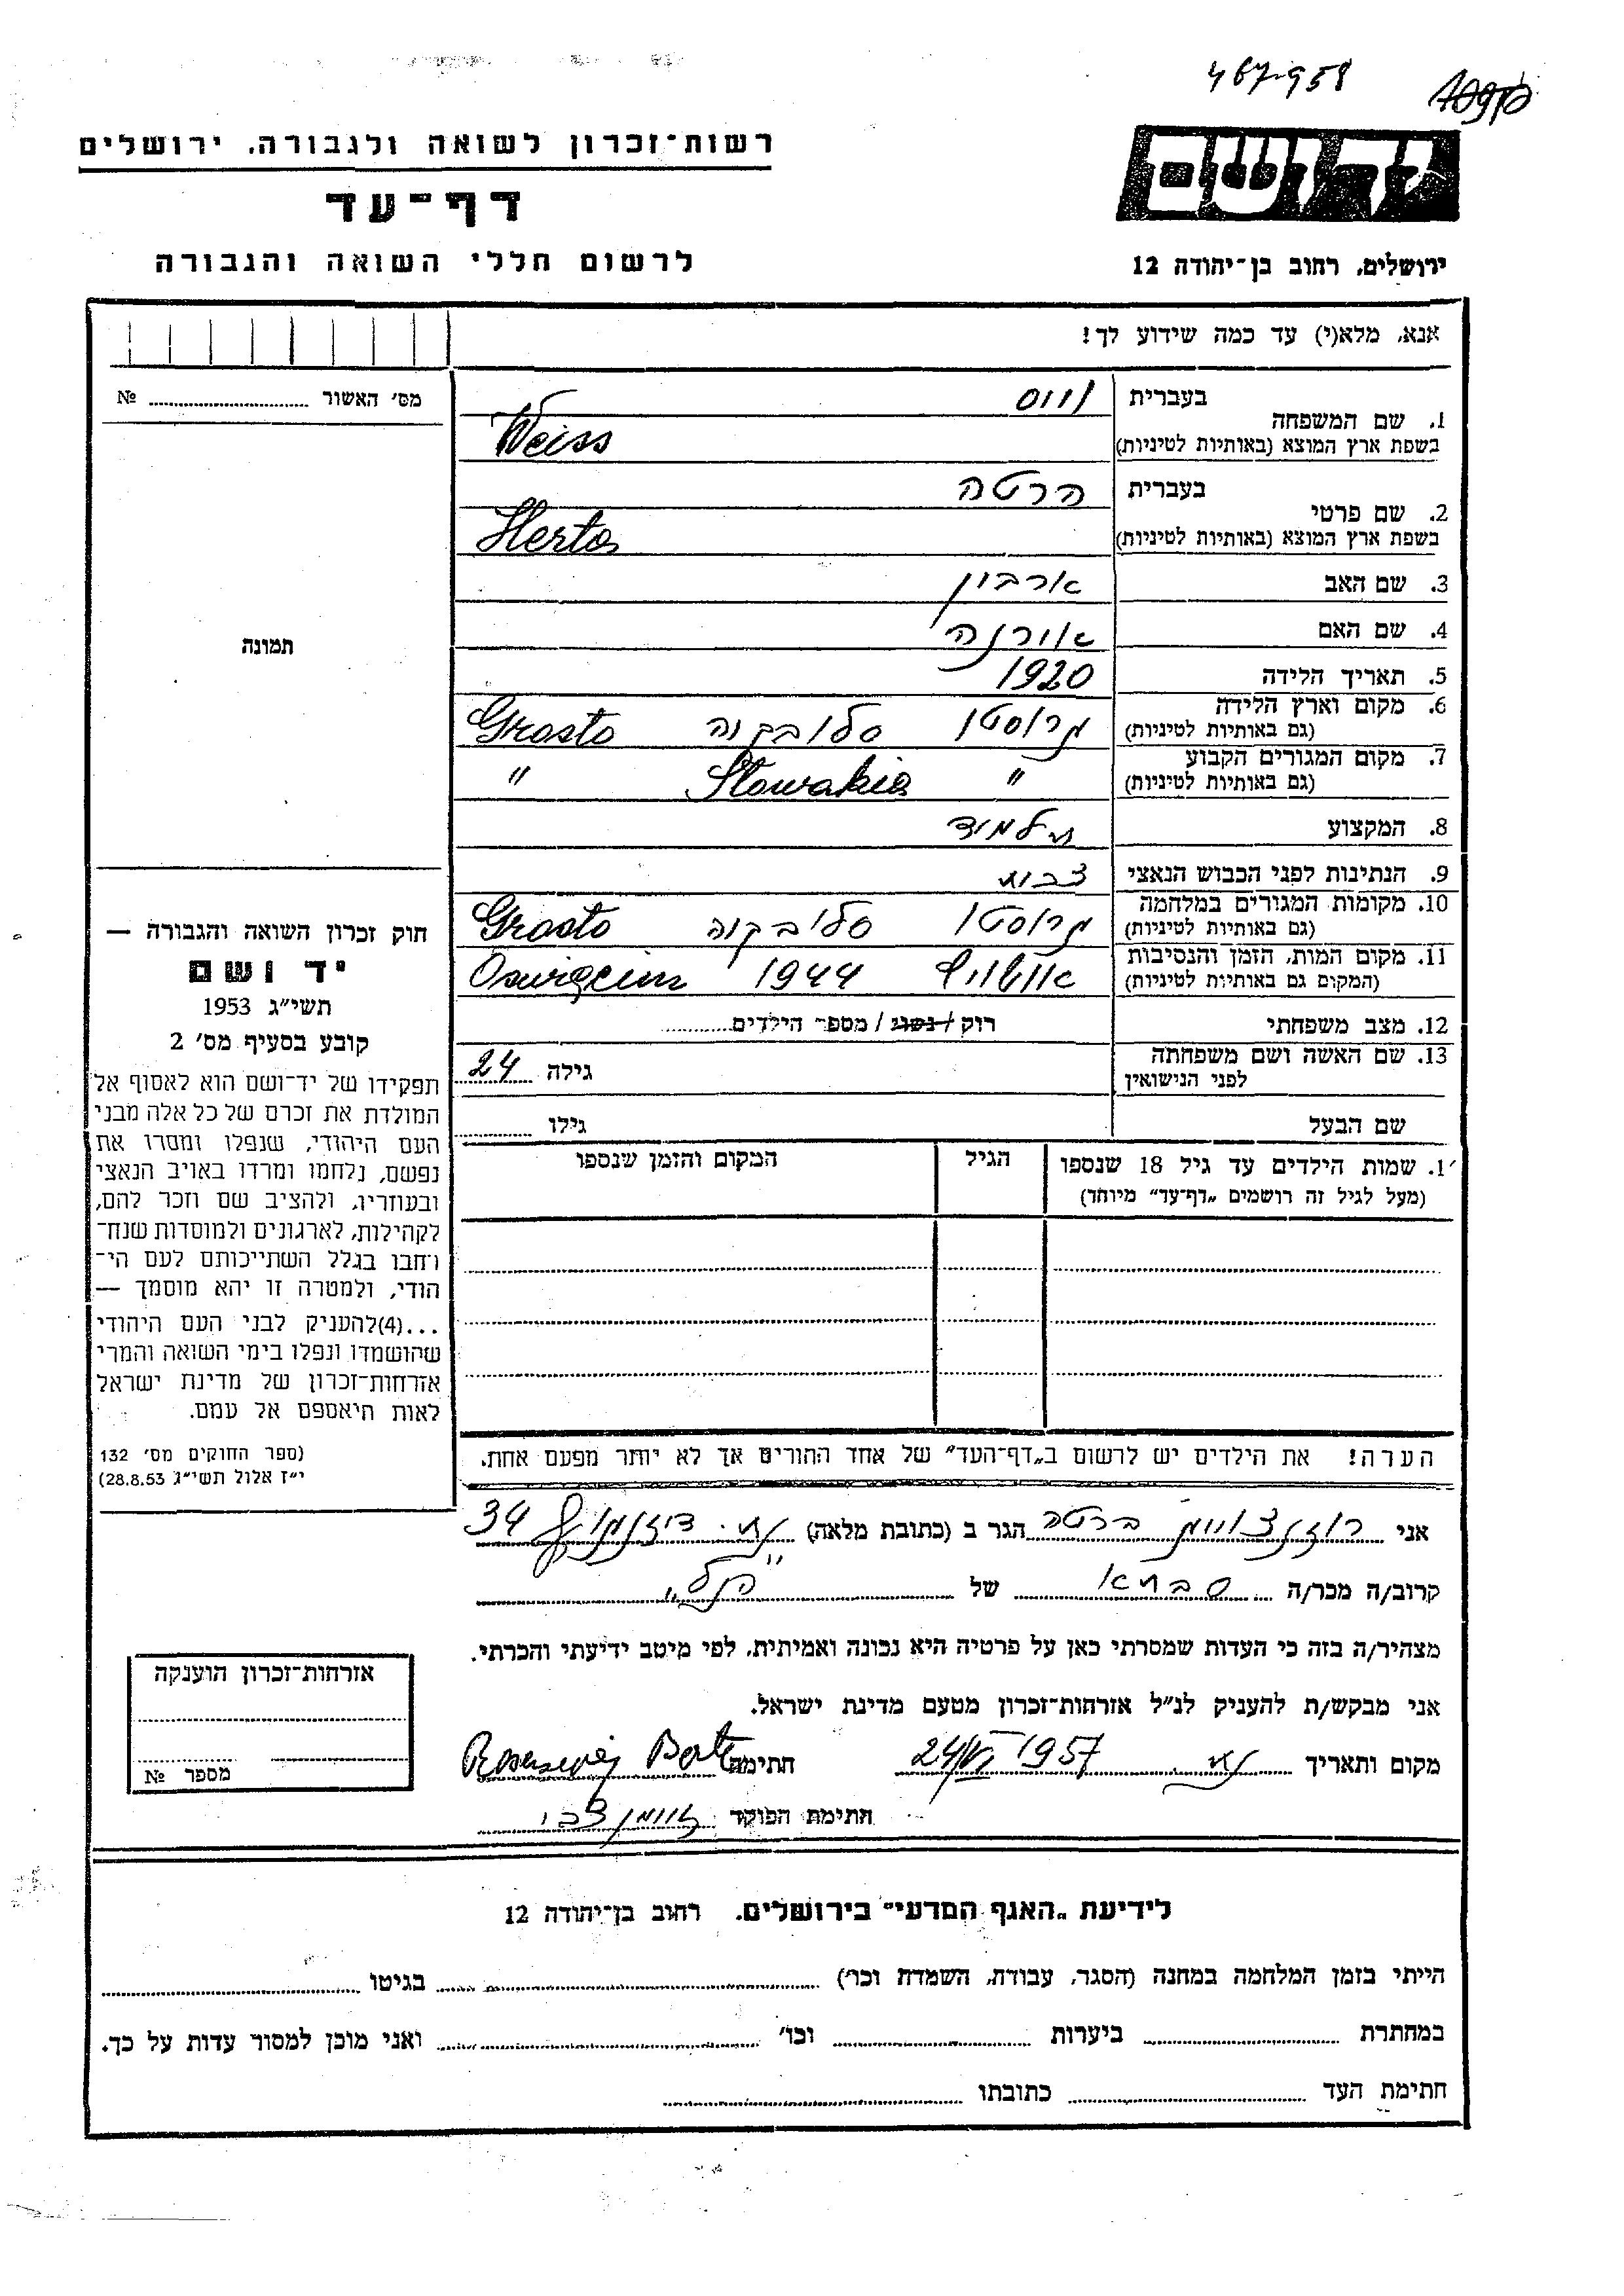 467-958
רשות־זכרון לשואה ולגבורה, ירושלים
יד ושם
דף־עד
לרשום חללי השואה והגבורה
ירושלים, רחוב בן־יהודה 12
אנא, מלא(י) עד כמה שידוע לך!
מס׳ האשור № ........
1. שם המשפחה
בעברית
ווייס
בשפת ארץ המוצא (באותיות לטיניות)
Weiss
2. שם פרטי
בעברית
הרטה
בשפת ארץ המוצא (באותיות לטיניות)
Herta
3. שם האב
ארבין
4. שם האם
אורנה
5. תאריך הלידה
1920
6. מקום וארץ הלידה
(גם באותיות לטיניות)
סלובקוה Grosto
7. מקום המגורים הקבוע
(גם באותיות לטיניות)
" Slowakia "
8. המקצוע
תלמוד
9. הנתינות לפני הכבוש הנאצי
10. מקומות המגורים במלחמה
(גם באותיות לטיניות)
סלובקוה Grosto
11. מקום המות, הזמן והנסיבות
(המקום גם באותיות לטיניות)
1944
12. מצב משפחתי
רוק / נשוי / מספר הילדים........
13. שם האשה ושם משפחתה
לפני הנישואין
גילה 24
שם הבעל
גילו ........
1. שמות הילדים עד גיל 18 שנספו
(מעל לגיל זה רושמים „דף־עד” מיוחד)
הגיל
המקום והזמן שנספו
הערה! את הילדים יש לרשום ב„דף־העד” של אחד ההורים אך לא יותר מפעם אחת.
תמונה
חוק זכרון השואה והגבורה —
יד ושם
תשי״ג 1953
קובע בסעיף מס׳ 2
תפקידו של יד־ושם הוא לאסוף אל
המולדת את זכרם של כל אלה מבני
העם היהודי, שנפלו ומסרו את
נפשם, נלחמו ומרדו באויב הנאצי
ובעוזריו, ולהציב שם וזכר להם,
לקהילות, לארגונים ולמוסדות שנח־
רחבו בגלל השתייכותם לעם הי־
הודי, ולמטרה זו יהא מוסמך —
...(4)להעניק לבני העם היהודי
שהושמדו ונפלו בימי השואה והמרי
אזרחות־זכרון של מדינת ישראל
לאות היאספם אל עמם.
(ספר החוקים מס׳ 132
י״ז אלול תשי״ג 28.8.53)
אני רוזנצוויג ברטה הגר ב (כתובת מלאה) ת״א דיזנגוף 34
קרוב/ה מכר/ה של "הנל"
מצהיר/ה בזה כי העדות שמסרתי כאן על פרטיה היא נכונה ואמיתית, לפי מיטב ידיעתי והכרתי.
אני מבקש/ת להעניק לנ״ל אזרחות־זכרון מטעם מדינת ישראל.
מקום ותאריך ת״א 24/VI 1957 חתימה
חתימת הפוקד
אזרחות־זכרון הוענקה
מספר №
לידיעת „האגף המדעי” בירושלים, רחוב בן־יהודה 12
הייתי בזמן המלחמה במחנה (הסגר, עבודה, השמדה וכו׳) ........ בגיטו ........
במחתרת ........ ביערות ........ וכו׳ ........ ואני מוכן למסור עדות על כך.
חתימת העד ........ כתובתו ........